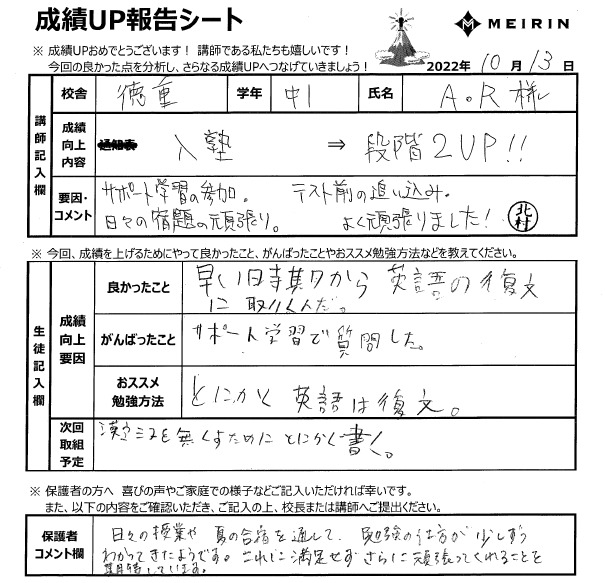 成績UP報告シート
MEIRIN
※ 成績UPおめでとうございます！ 講師である私たちも嬉しいです！
今回の良かった点を分析し、さらなる成績UPへつなげていきましょう！
2022年 10月 13日
校舎 徳重 学年 中1 氏名 A.R 様
講師記入欄
成績向上内容 通知表 入塾 ⇒ 段階2UP!!
要因・コメント サポート学習の参加。 テスト前の追い込み。
日々の宿題の頑張り。 よく頑張りました! 北村
※ 今回、成績を上げるためにやって良かったこと、がんばったことやおススメ勉強方法などを教えてください。
生徒記入欄
成績向上要因
良かったこと 早い時期から 英語の復文
に取りくんだ。
がんばったこと サポート学習で質問した。
おススメ勉強方法 とにかく 英語は復文。
次回取組予定 漢字ミスを無くすために とにかく書く。
※ 保護者の方へ 喜びの声やご家庭での様子などご記入いただければ幸いです。
また、以下の内容をご確認いただき、ご記入の上、校長または講師へご提出ください。
保護者コメント欄 日々の授業や 夏の合宿を通して、 勉強の仕方が少しずつ
わかってきたようです。これに満足せず さらに頑張ってくれることを
期待しています。